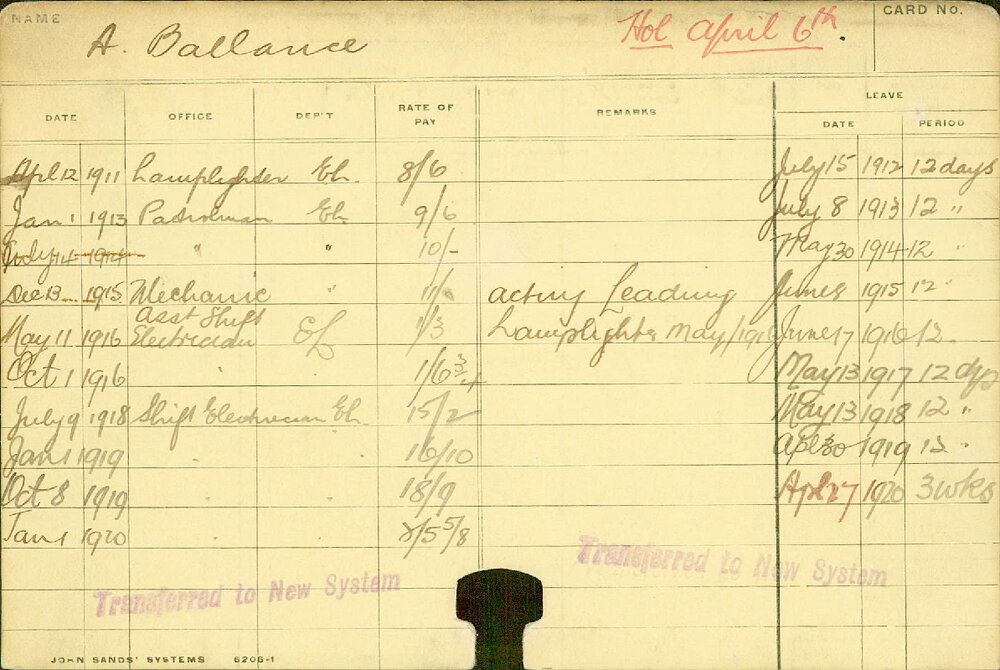 NAME A. Ballance Hol April 6th. CARD NO.
DATE OFFICE DEP'T RATE OF PAY REMARKS LEAVE
DATE PERIOD
Apl 12 1911 Lamplighter Eh. 8/6 July 15 1912 12 days
Jan 1 1913 Patrolman Eh. 9/6 July 8 1913 12 "
July 14 1914 " " 10/- May 30 1914 12 "
Dec 13 1915 Mechanic " 11/- acting Leading June 1915 12 "
May 11 1916 Asst Shift Electrician 1/3 Lamplighter May/1916 June 17 1916 12
Oct 1 1916 " 1/6 3/4 May 13 1917 12 dys
July 9 1918 Shift Electrician Eh. 15/2 May 13 1918 12 "
Jan 1 1919 " " 16/10 Apl 30 1919 12 "
Oct 8 1919 " " 18/9 Apl 27 1920 3 wks
Jan 1 1920 " " /5 5/8
Transferred to New System Transferred to New System
JOHN SANDS' SYSTEMS 6206-1